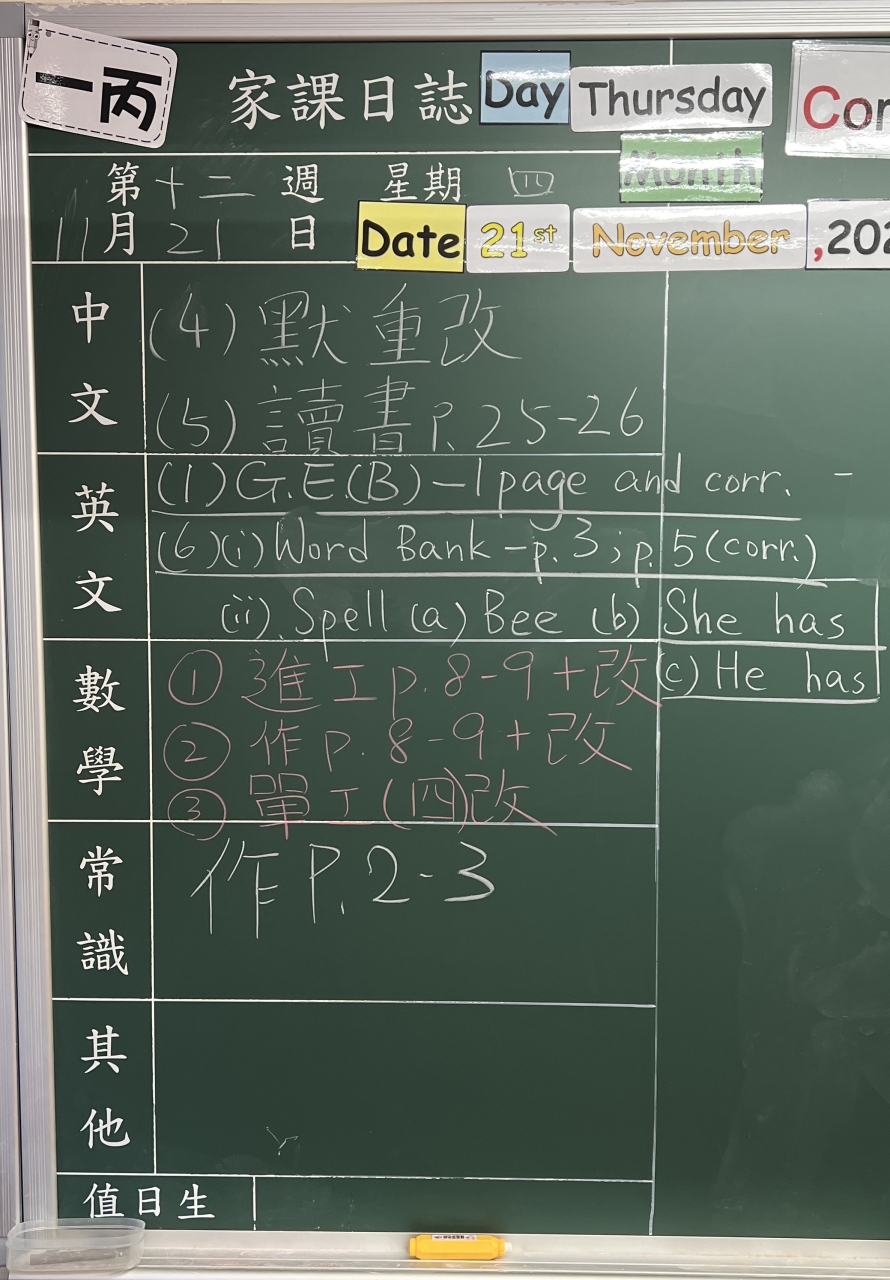 一丙
家課日誌 Day Thursday
Month
第十二週 星期四
11月21日 Date 21st November
中文 (4) 默重改
(5) 讀書P.25-26
英文 (1) G.E.(B) – 1 page and corr. -
(6)(i) Word Bank – p.3; p.5 (corr.)
(ii) Spell (a) Bee (b) She has
(c) He has
數學 ① 進工p.8-9+改
② 作p.8-9+改
③ 單工(四)改
常識 作P.2-3
其他
值日生